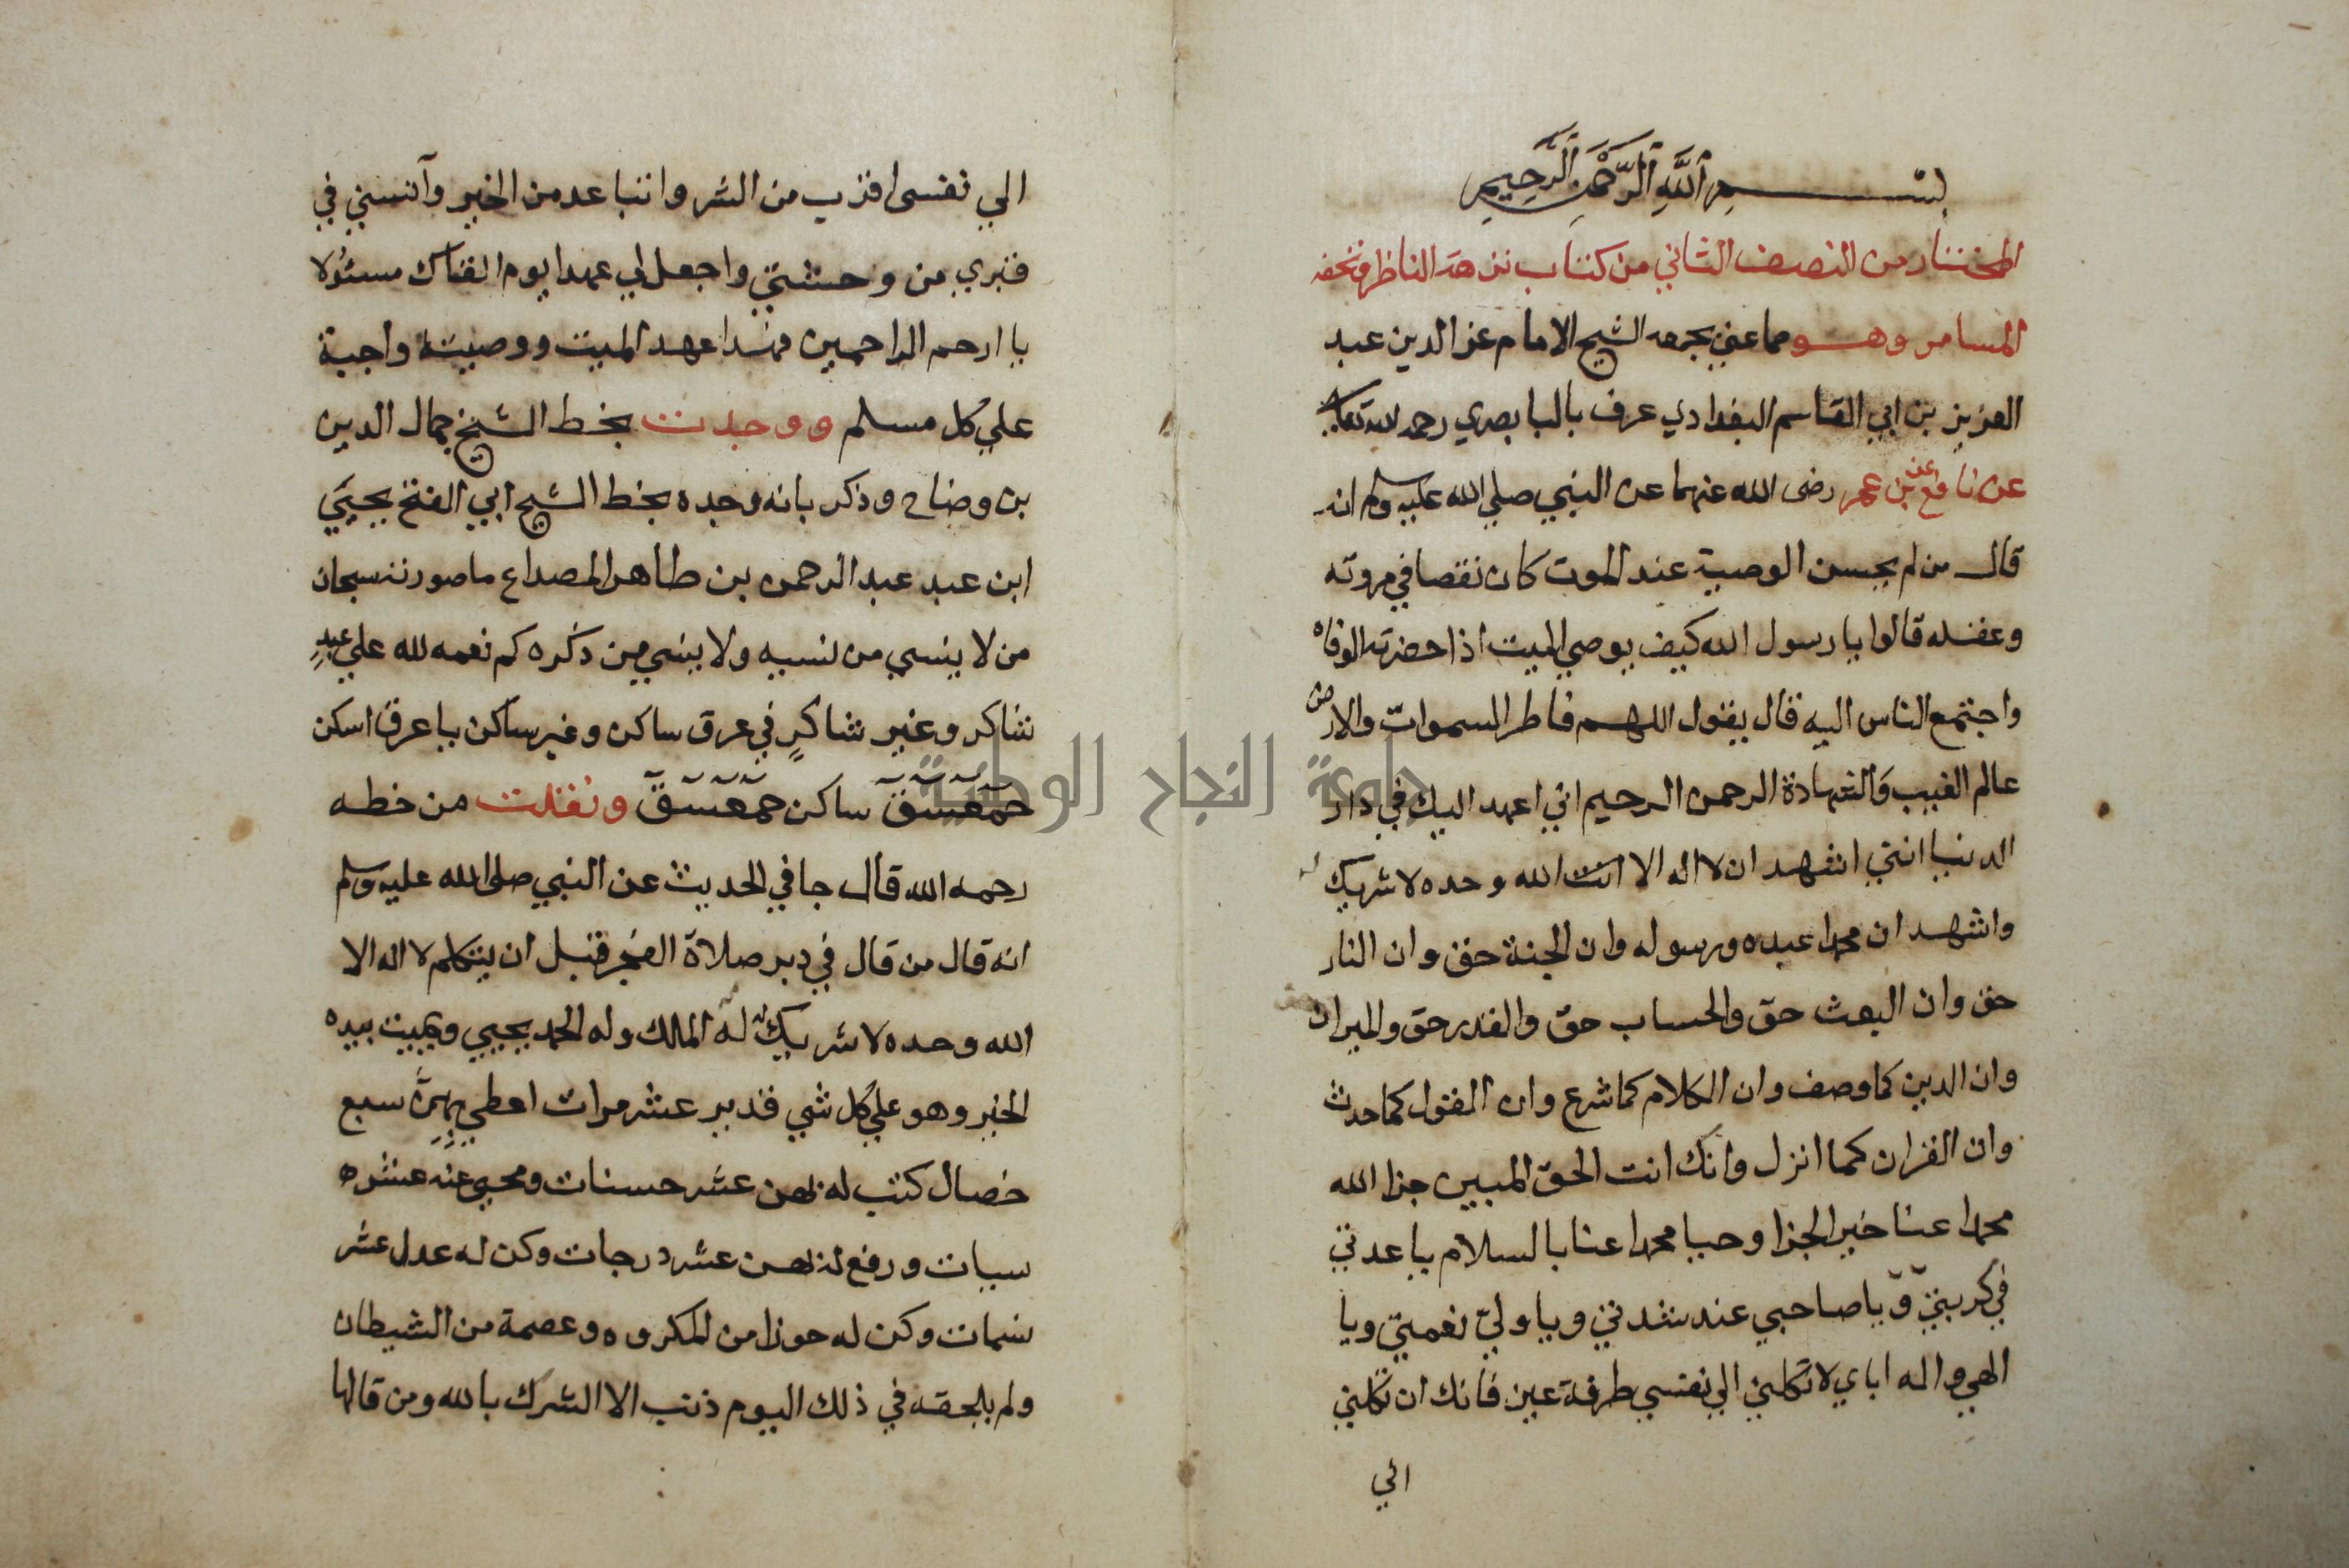 بسم الله الرحمن الرحيم
المختار من النصف الثاني من كتاب نزهة الناظر وتحفة
المسامر وهو مما عني بجمعه الشيخ الامام عز الدين عبد
العزيز بن ابي القاسم البغدادي عرف بالبابصري رحمه الله تعالى
عن نافع عن بن عمر رضى الله عنهما عن النبي صلي الله عليه وسلم انه
قال من لم يحسن الوصية عند الموت كان نقصا في مروته
وعقله قالوا يا رسول الله كيف يوصي الميت اذا حضرته الوفاه
واجتمع الناس اليه قال يقول اللهم فاطر السموات والارض
عالم الغيب والشهادة الرحمن الرحيم اني اعهد اليك في دار
الدنيا انني اشهد ان لا اله الا انت الله وحده لا شريك له
واشهد ان محمدا عبده ورسوله وان الجنة حق وان النار
حق وان البعث حق والحساب حق والقدر حق والميزان حق
وان الدين كما وصف وان الكلام كما شرع وان القول كما حدث
وان القران كما انزل وانك انت الحق المبين جزا الله
محمدا عنا خير الجزا وحيا محمدا عنا بالسلام يا عدتي
في كربتي ويا صاحبي عند شدتي ويا ولي نعمتي ويا
الهي واله اباي لا تكلني الي نفسي طرفة عين فانك ان تكلني
الي
الي نفسى اقرب من الشر واتباعد من الخير وآنسني في
قبري من وحشتي واجعل لي عهدا يوم القاك مسئولا
يا ارحم الراحمين فهذا عهد الميت ووصيته واجبة
علي كل مسلم ووجدت بخط الشيخ جمال الدين
بن وضاح وذكر بانه وجده بخط الشيخ ابي الفتح يحيي
ابن عبد عبد الرحمن بن طاهر المصداع ما صورته سبحان
من لا ينسي من نسيه ولا ينسي من ذكره كم نعمه لله علي عبد
شاكر وغير شاكر في عرق ساكن وغير ساكن يا عرق اسكن
حمعسق ساكن حمعسق ونقلت من خطه
رحمه الله قال جا في الحديث عن النبي صلى الله عليه وسلم
انه قال من قال في دبر صلاة الفجر قبل ان يتكلم لا اله الا
الله وحده لا شريك له له المالك وله الحمد يحيي ويميت بيده
الخير وهو علي كل شي قدير عشر مرات اعطي بهن سبع
خصال كتب له بهن عشر حسنات ومحي عنه عشره
سيات ورفع له بهن عشر درجات وكن له عدل عشر
نسمات وكن له حوزا من المكروه وعصمة من الشيطان
ولم يلحقه في ذلك اليوم ذنب الا الشرك بالله ومن قالها
جامعة النجاح الوطنية